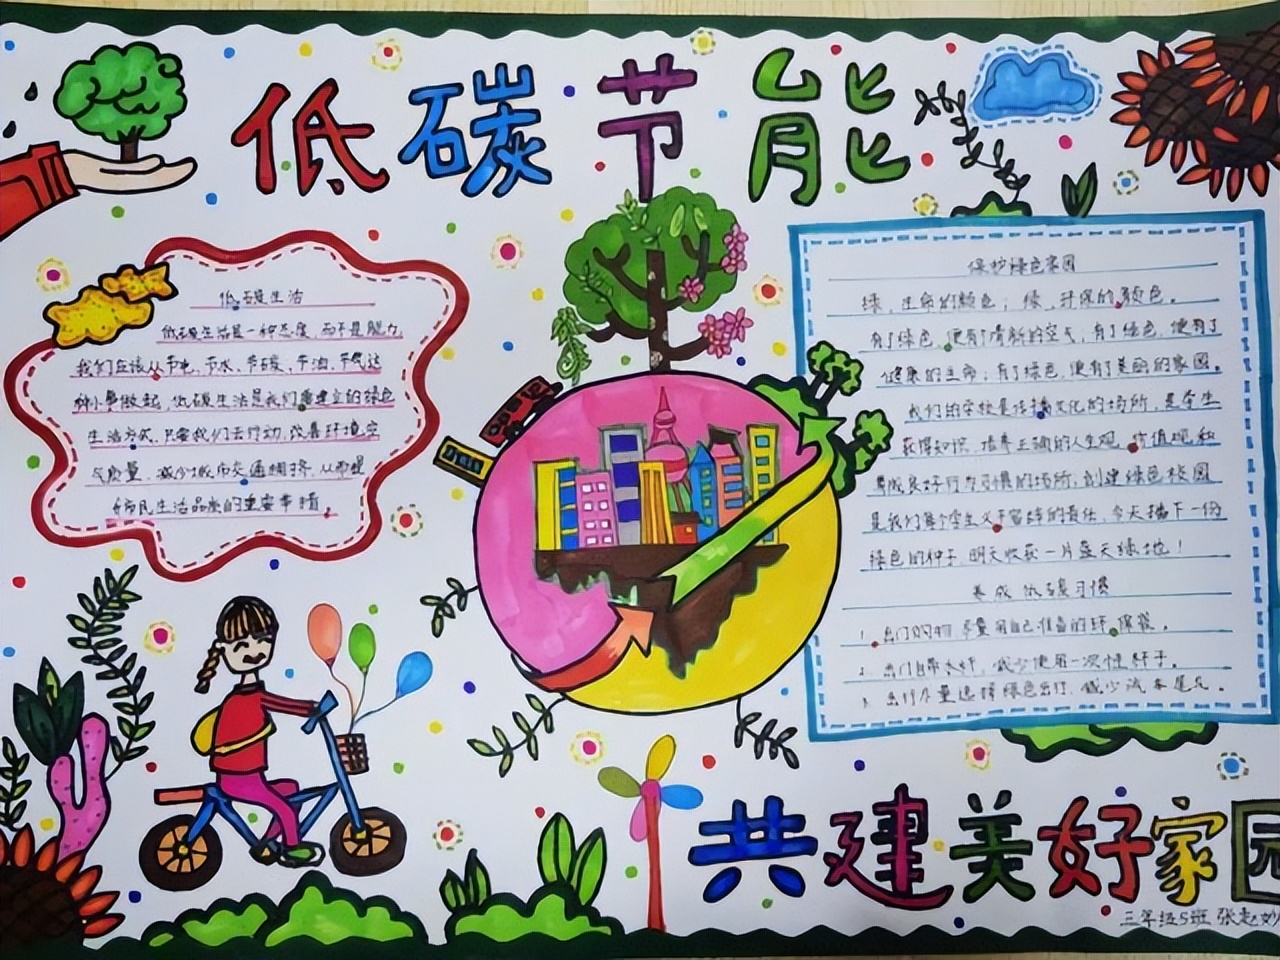 低碳节能
低碳生活
低碳生活是一种态度，而不是能力，
我们应该从节电，节水，节碳，节油，节气这
种小事做起，低碳生活是我们需建立的绿色
生活方式，只要我们去行动，改善环境空
气质量，减少城市交通拥挤，从而提
市民生活品质的重要事情。
保护绿色家园
绿，生命的颜色；绿，环保的颜色。
有了绿色，便有了清新的空气；有了绿色，便有了
健康的生命；有了绿色，便有了美丽的家园。
我们的学校是传播文化的场所，是学生
获得知识，培养正确的人生观，价值观和
养成良好行为习惯的场所，创建绿色校园
是我们每个学生义不容辞的责任，今天播下一份
绿色的种子，明天收获一片蓝天绿地！
养成低碳习惯
1. 出门购物尽量用自己准备的环保袋。
2. 出门自带水杯，减少使用一次性杯子。
3. 出行尽量选择绿色出行，减少汽车尾气。
共建美好家园
三年级5班 张赵妙